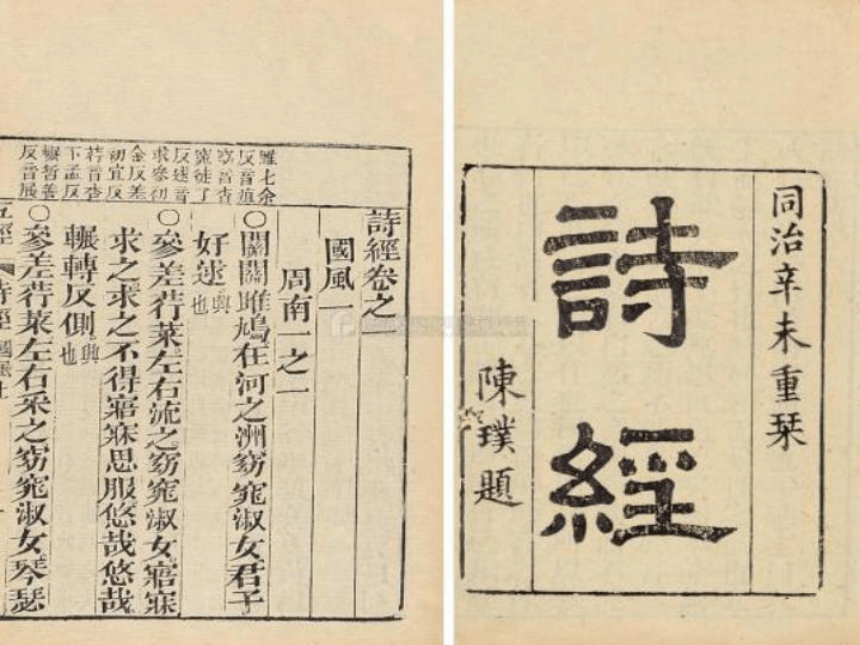 同治辛未重栞
詩經
陳璞題
雎七余
反音疽
窈音杳
窕徒了
反逑音
求參初
金反差
初宜反
荇音
下孟反
輾哲善
反音展
詩經卷之
國風一
周南一之一
○關關雎鳩在河之洲窈窕淑女君子
好逑興也
○參差荇菜左右流之窈窕淑女寤寐
求之求之不得寤寐思服悠哉悠哉
輾轉反側興也
○參差荇菜左右采之窈窕淑女琴瑟